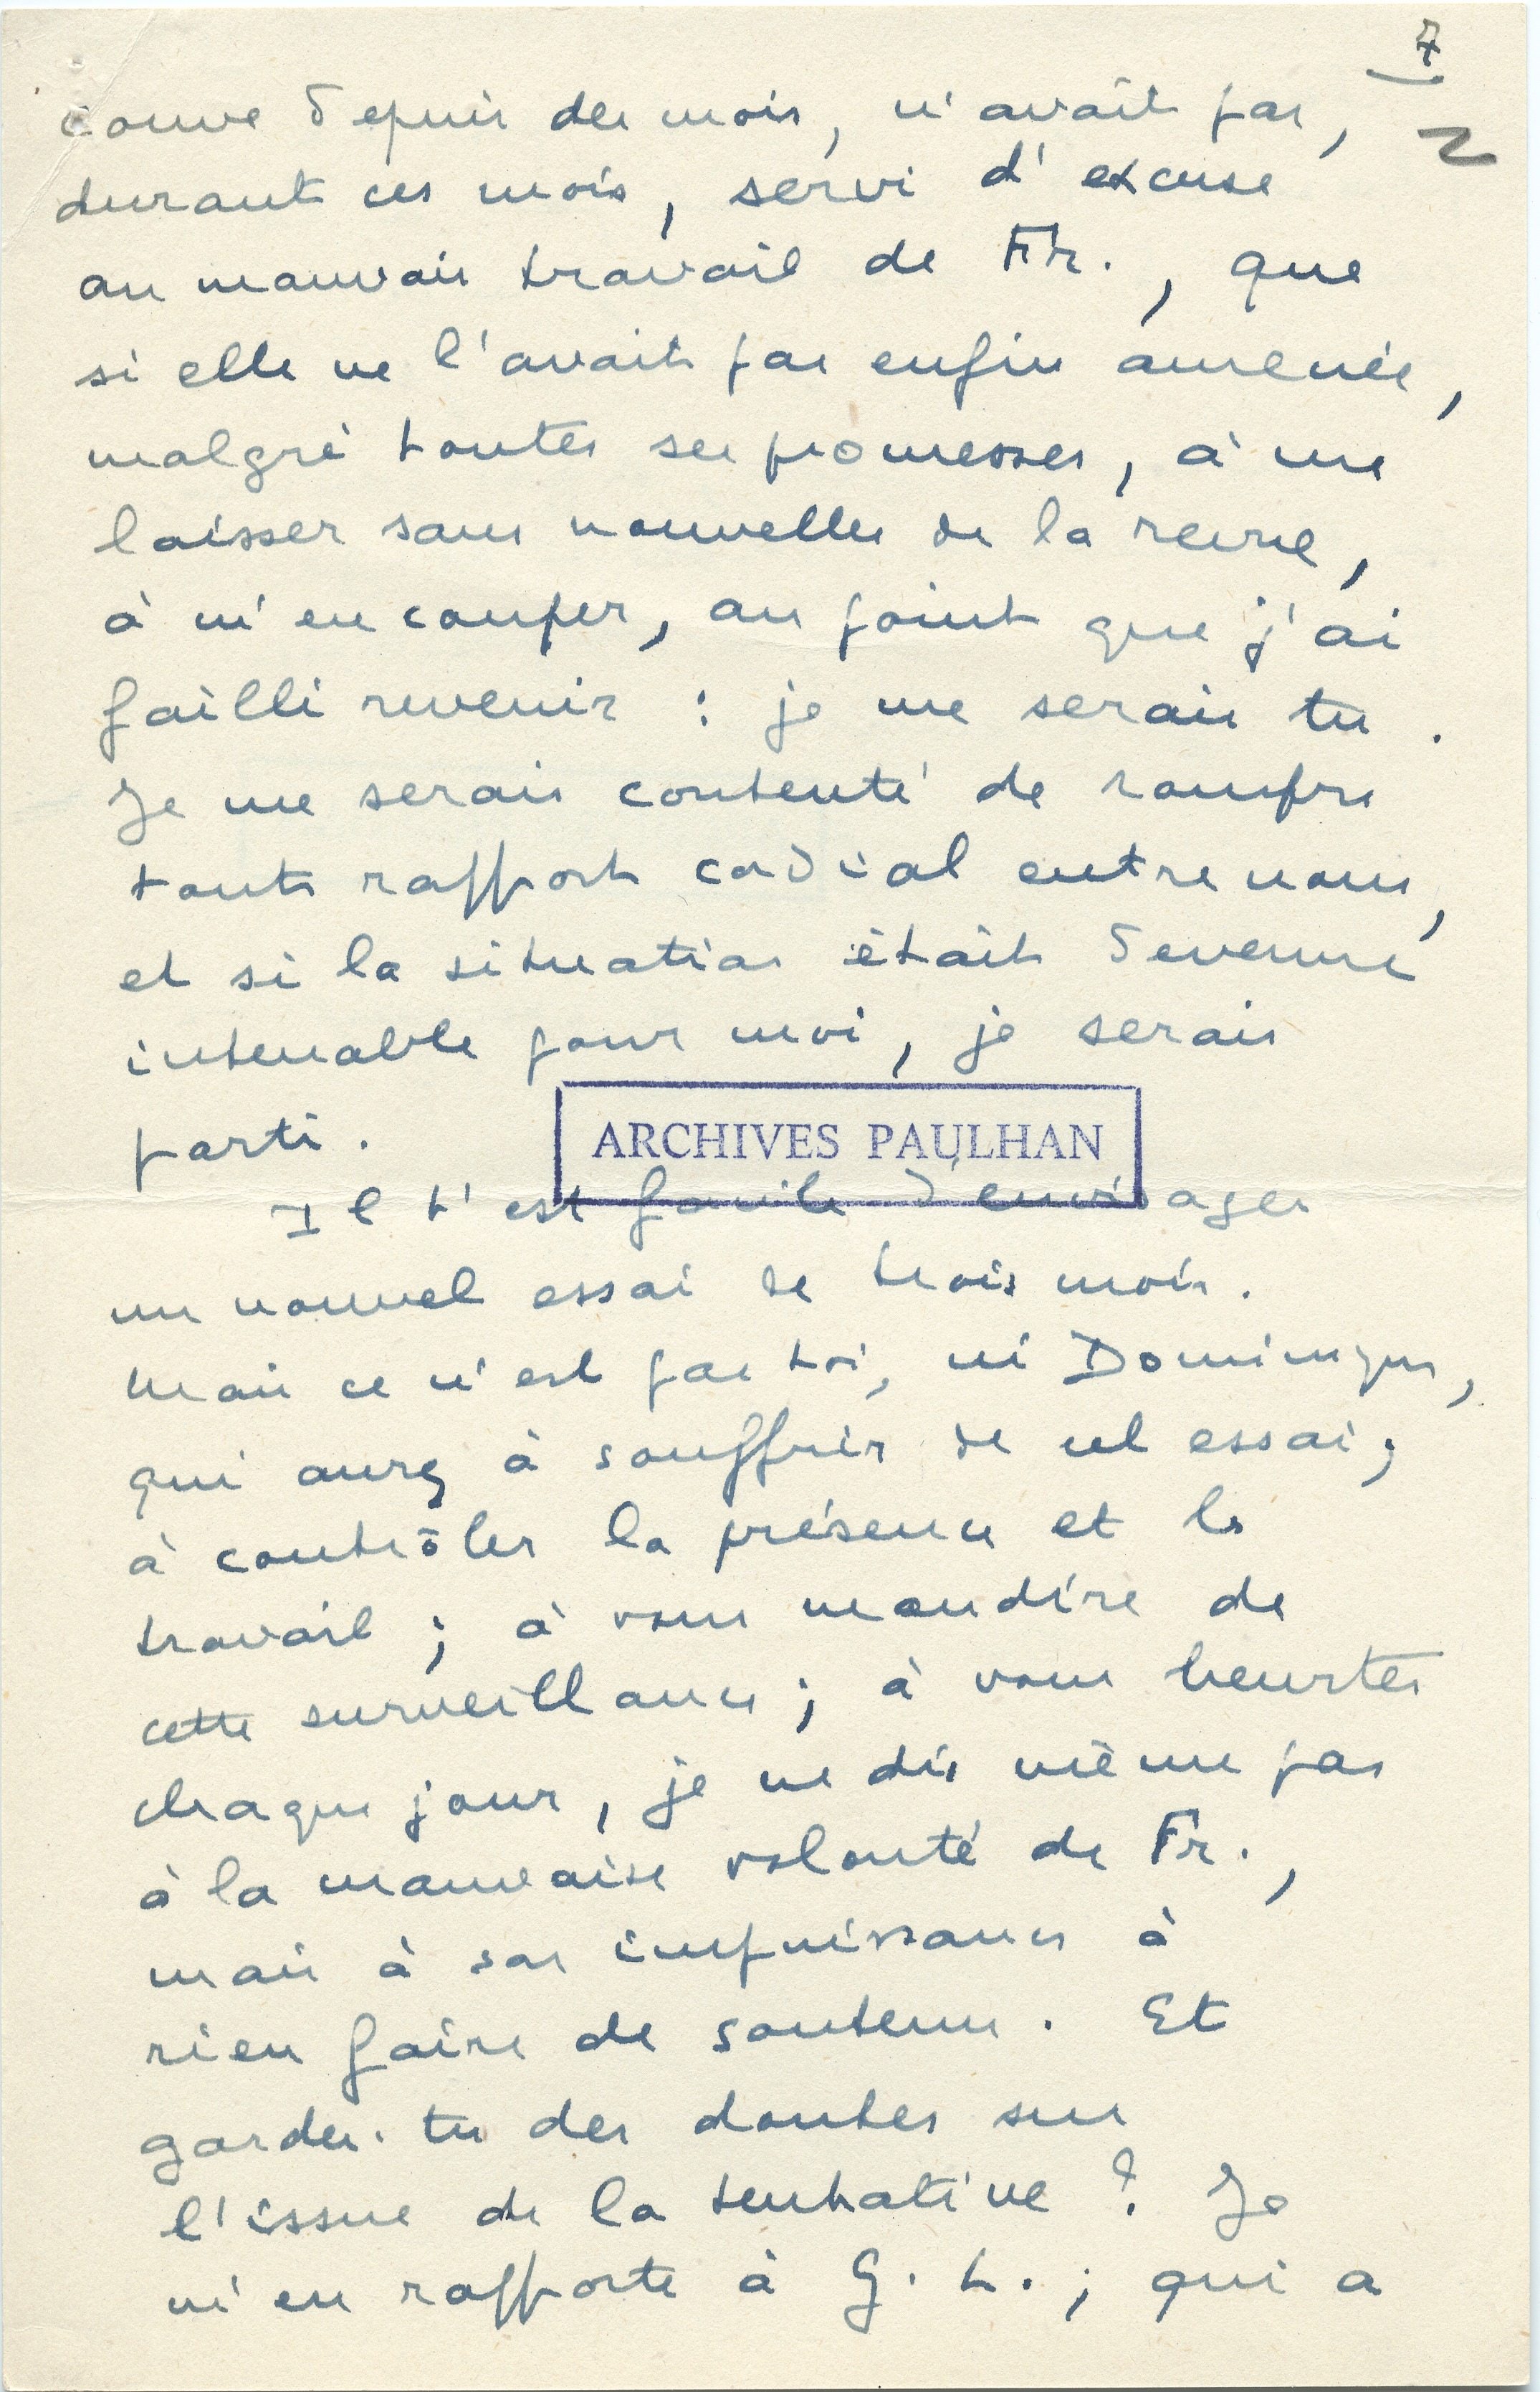 7
2
couve depuis des mois, n'avait pas,
durant ces mois, servi d'excuse
au mauvais travail de Fr., que
si elle ne l'avait pas enfin amenée,
malgré toutes ses promesses, à me
laisser sans nouvelles de la revue,
à m'en couper, au point que j'ai
failli revenir : je me serais tu.
Je me serais contenté de rompre
tout rapport cordial entre nous,
et si la situation était devenue
intenable pour moi, je serais
parti.
ARCHIVES PAULHAN
Il t'est facile d'envisager
un nouvel essai de trois mois.
Mais ce n'est pas toi, ni Dominique,
qui aurez à souffrir de cet essai ;
à contrôler la présence et le
travail ; à vous maudire de
cette surveillance ; à vous heurter
chaque jour, je ne dis même pas
à la mauvaise volonté de Fr.,
mais à son impuissance à
rien faire de soutenu. Et
gardes-tu des doutes sur
l'issue de la tentative ? Je
m'en rapporte à G. L. ; qui a